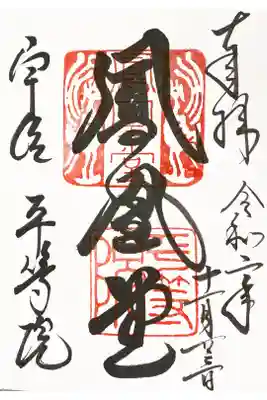 奉拝
令和二年
十一月廿三日
鳳凰堂
宇治 平等院